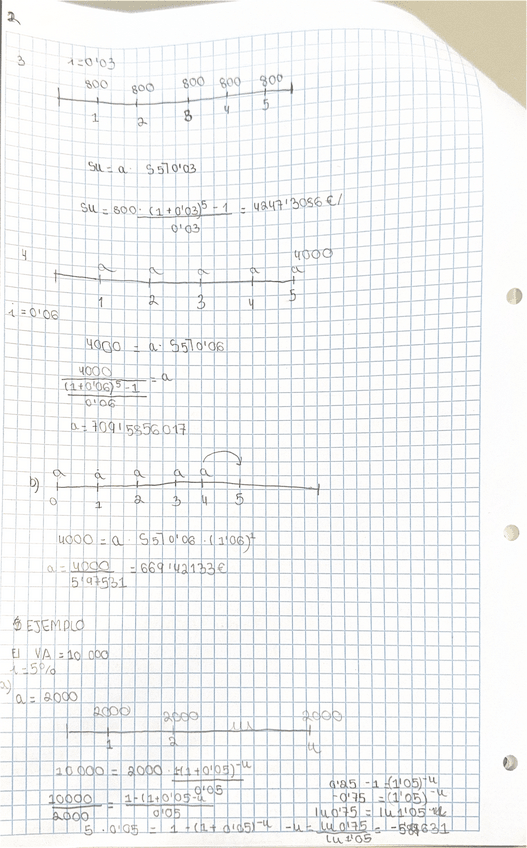 2
3 i=0'03
800 800 800 800 800
1 2 3 4 5
Su = a · S5⌉0'03
Su = 800 · (1+0'03)^5 - 1 / 0'03 = 4247'3086 €/
4 4000
a a a a a
1 2 3 4 5
i=0'06
4000 = a · S5⌉0'06
4000 / ((1+0'06)^5 - 1 / 0'06) = a
a = 709'5856017
b) a a a a a
0 1 2 3 4 5
4000 = a · S5⌉0'06 · (1'06)^1
a = 4000 / 5'97531 = 669'42133€
5 EJEMPLO
El VA = 10.000
i = 5%
a)
a = 2000
2000 2000 ... 2000
1 2 u
10.000 = 2000 · 1-(1+0'05)^-u / 0'05
10000 / 2000 = 1-(1+0'05^-u / 0'05
5 · 0'05 = 1 - (1+0'05)^-u
0'25 - 1 = (1'05)^-u
-0'75 = (1'05)^-u
lu 0'75 = lu 1'05^-u
-u = lu 0'75 / lu 1'05